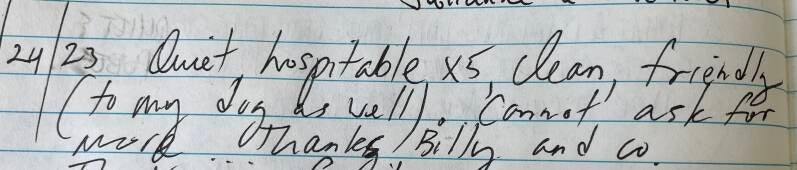 24/23 Quiet, hospitable x5, clean, friendly
(to my dog as well). Cannot ask for
more Thanks Billy and co.